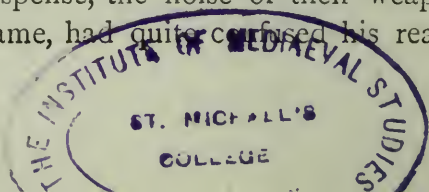 spense, the noise of their weap
ame, had quite confused his rea
THE INSTITUTE OF MEDIAEVAL STUDIES
ST. MICHAEL'S
COLLEGE